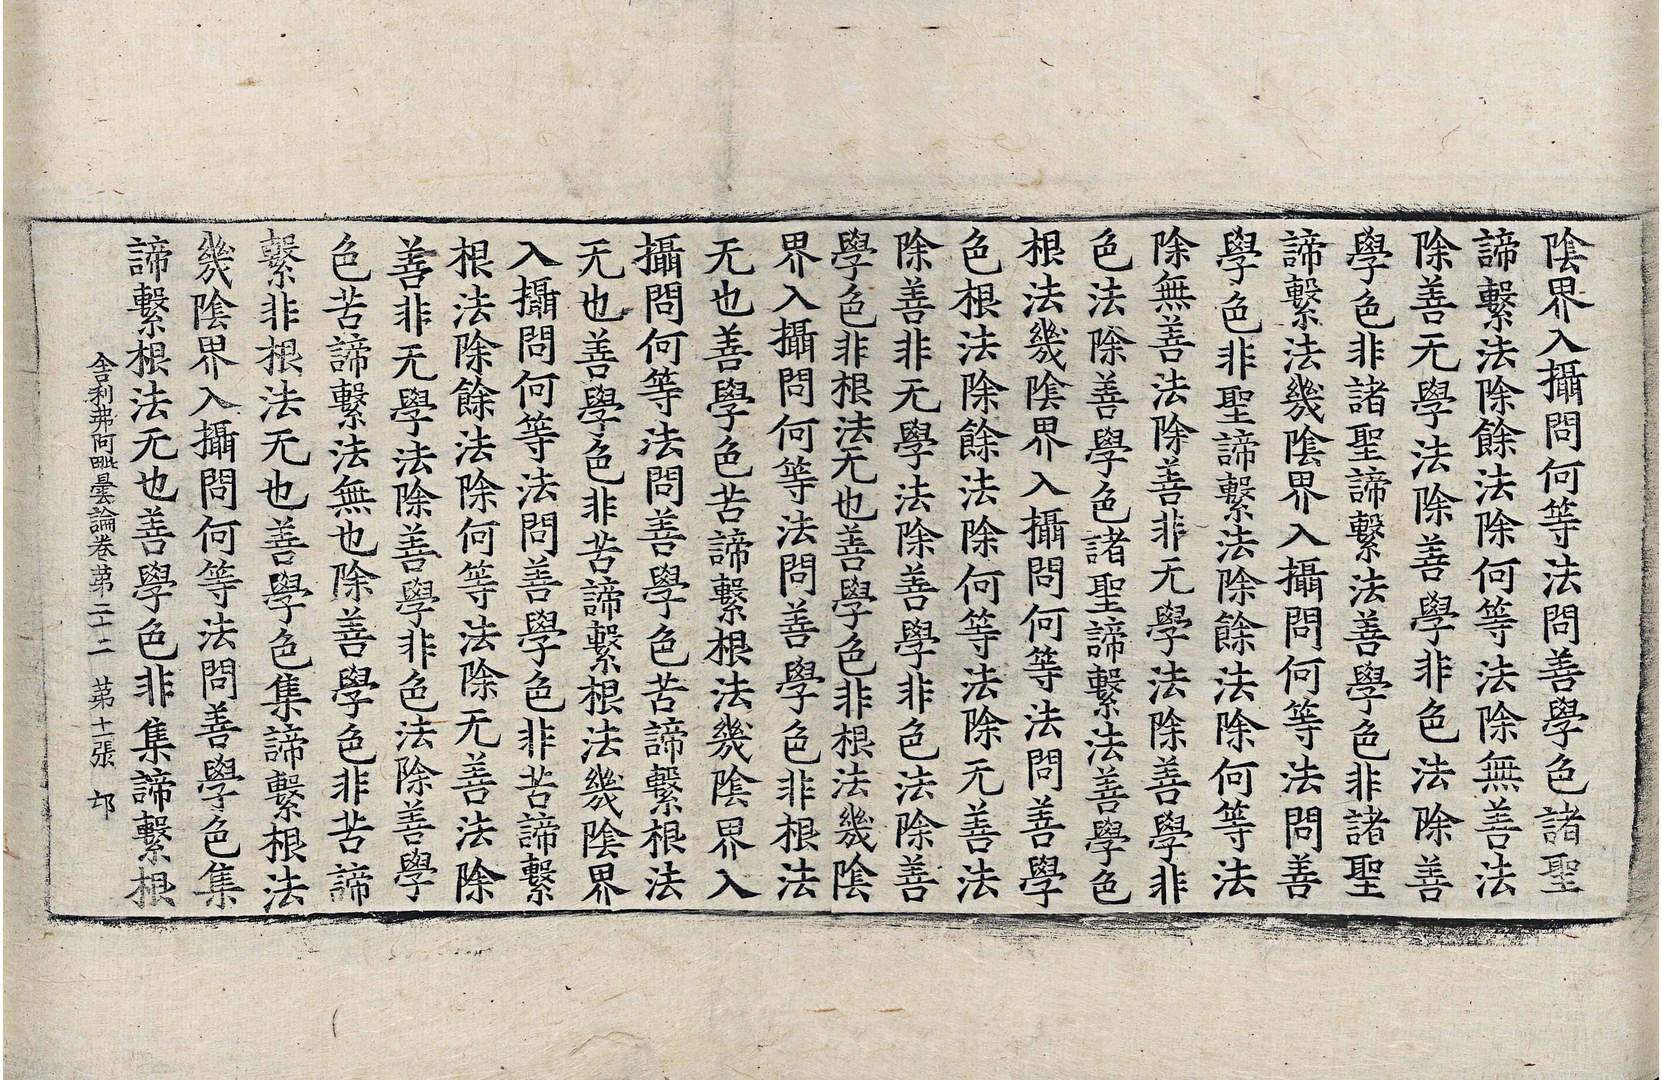 陰界入攝問何等法問善學色諸聖
諦繫法除餘法除何等法除無善法
除善无學法除善學非色法除善
學色非諸聖諦繫法善學色非諸聖
諦繫法幾陰界入攝問何等法問善
學色非聖諦繫法除餘法除何等法
除無善法除善非无學法除善學非
色法除善學色諸聖諦繫法善學色
根法幾陰界入攝問何等法問善學
色根法除餘法除何等法除无善法
除善非无學法除善學非色法除善
學色非根法无也善學色非根法幾陰
界入攝問何等法問善學色非根法
无也善學色苦諦繫根法幾陰界入
攝問何等法問善學色苦諦繫根法
无也善學色非苦諦繫根法幾陰界
入攝問何等法問善學色非苦諦繫
根法除餘法除何等法除无善法除
善非无學法除善學非色法除善學
色苦諦繫法無也除善學色非苦諦
繫非根法无也善學色集諦繫根法
幾陰界入攝問何等法問善學色集
諦繫根法无也善學色非集諦繫根
舍利弗阿毗曇論卷苐二十二　第十一張　邙